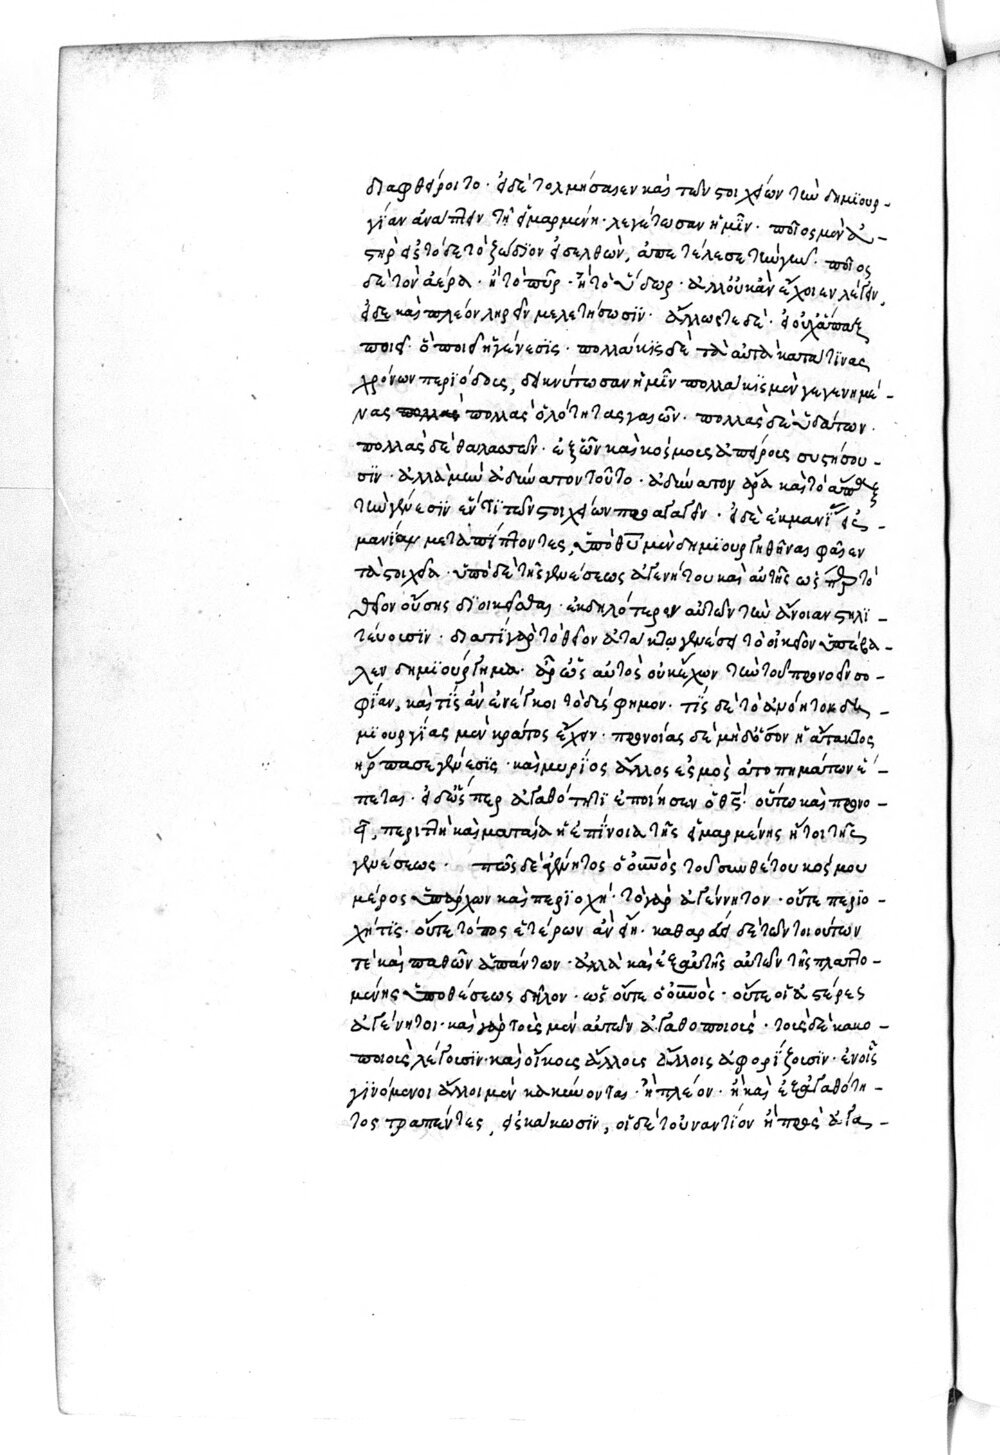 διαφθείροιτο· εἰ δὲ τολμήσαιεν καὶ τῶν στοιχείων τὴν δημϊουρ-
γίαν ἀνάπτειν τῇ εἱμαρμένῃ· λεγέτωσαν ἡμῖν· ποῖος μὲν ἀ-
στὴρ εἰς τόδε τὸ ζώδϊον εἰσελθὼν, ἀπετέλεσε τὴν γῆν· ποῖος
δὲ τὸν ἀέρα· ἢ τὸ πῦρ· ἢ τὸ ὕδωρ· ἀλλ' οὐκ ἂν ἔχοιεν λέγειν,
εἰ δὲ καὶ πλέον ληρεῖν μελετήσωσϊν· ἄλλως τε δὲ· εἰ οὐχ ἅπαξ
ποιεῖ· ὃ ποιεῖ ἡ γένεσϊς· πολλάκϊς δὲ τὰ αὐτὰ κατά τϊνας
χρόνων περϊόδους, δεικνύτωσαν ἡμῖν πολλάκϊς μὲν γεγενημέ-
νας πολλὰς ὁλότητας γαιῶν· πολλὰς δὲ ὑδάτων·
πολλὰς δὲ θαλασσῶν· ἐξ ὧν καὶ κόσμους ἀπείρους συστήσου-
σϊν· ἀλλὰ μὴν ἀδύνατον τοῦτο· ἀδύνατον ἄρα καὶ τὸ
τὴν γένεσϊν εἶναί τϊ τῶν στοιχείων παραγαγεῖν· εἰ δὲ ἐκ μανίας εἰς
μανίαν μεταπίπτοντες, ὑπὸ θεοῦ μὲν δημϊουργηθῆναι φαῖεν
τὰ στοιχεῖα· ὑπὸ δὲ τῆς γενέσεως ἀγενήτου καὶ αὐτῆς ὡς παρὰ τὸ
θεῖον οὔσης δϊοικεῖσθαι· ἐκδηλότερον αὐτῶν τὴν ἄνοιαν στηλϊ-
τεύουσϊν· διατί γὰρ τὸ θεῖον ἀτάκτῳ γενέσει τὸ οἰκεῖον ὑπέβα-
λεν δημϊούργημα· ἆρ' ὡς αὐτὸς οὐκ ἔχων τὴν τοῦ προνοεῖν σο-
φΐαν, καὶ τίς ἂν ἐνέγκοι τὸ δύσφημον· τίς δὲ τὸ ἀνόητον δη-
μϊουργίας μὲν κράτος ἔχειν· προνοίας δὲ μηδ' ὅσον ἡ ἄτακτος
ἥρπασε γένεσϊς· καὶ μυρίος ἄλλος ἑσμὸς ἀτοπημάτων ἕ-
πεται· εἰ δ' ὥσπερ ἀγαθότητϊ ἐποίησεν ὁ θεός· οὕτω καὶ προνο-
εῖ, περιττὴ καὶ ματαία ἡ ἐπίνοια τῆς εἱμαρμένης ἤτοι τῆς
γενέσεως· πῶς δὲ ἀγένητος ὁ οὐρανὸς τοῦ συνθέτου κόσμου
μέρος ὑπάρχων καὶ περϊοχή· τὸ γὰρ ἀγέννητον· οὔτε περϊο-
χή τϊς· οὔτε τόπος ἑτέρων ἂν εἴη· καθαρεύει δὲ τῶν τοιούτων
τὲ καὶ παθῶν ἁπάντων· ἀλλὰ καὶ ἐξ αὐτῆς αὐτῶν τῆς πλαττο-
μένης ὑποθέσεως δῆλον· ὡς οὔτε ὁ οὐρανὸς· οὔτε οἱ ἀστέρες
ἀγέννητοι· καὶ γὰρ τοὺς μὲν αὐτῶν ἀγαθοποιοὺς· τοὺς δὲ κακο-
ποιοὺς λέγουσϊν· καὶ οἴκους ἄλλους ἄλλοις ἀφορίζουσϊν· ἐν οἷς
γϊνόμενοι ἄλλοι μὲν κακύνονται· ἢ πλέον· ἢ καὶ ἐξ ἀγαθότη-
τος τραπέντες, εἰς κάκωσϊν, οἱ δὲ τοὐναντίον ἢ πρὸς ἀγα-